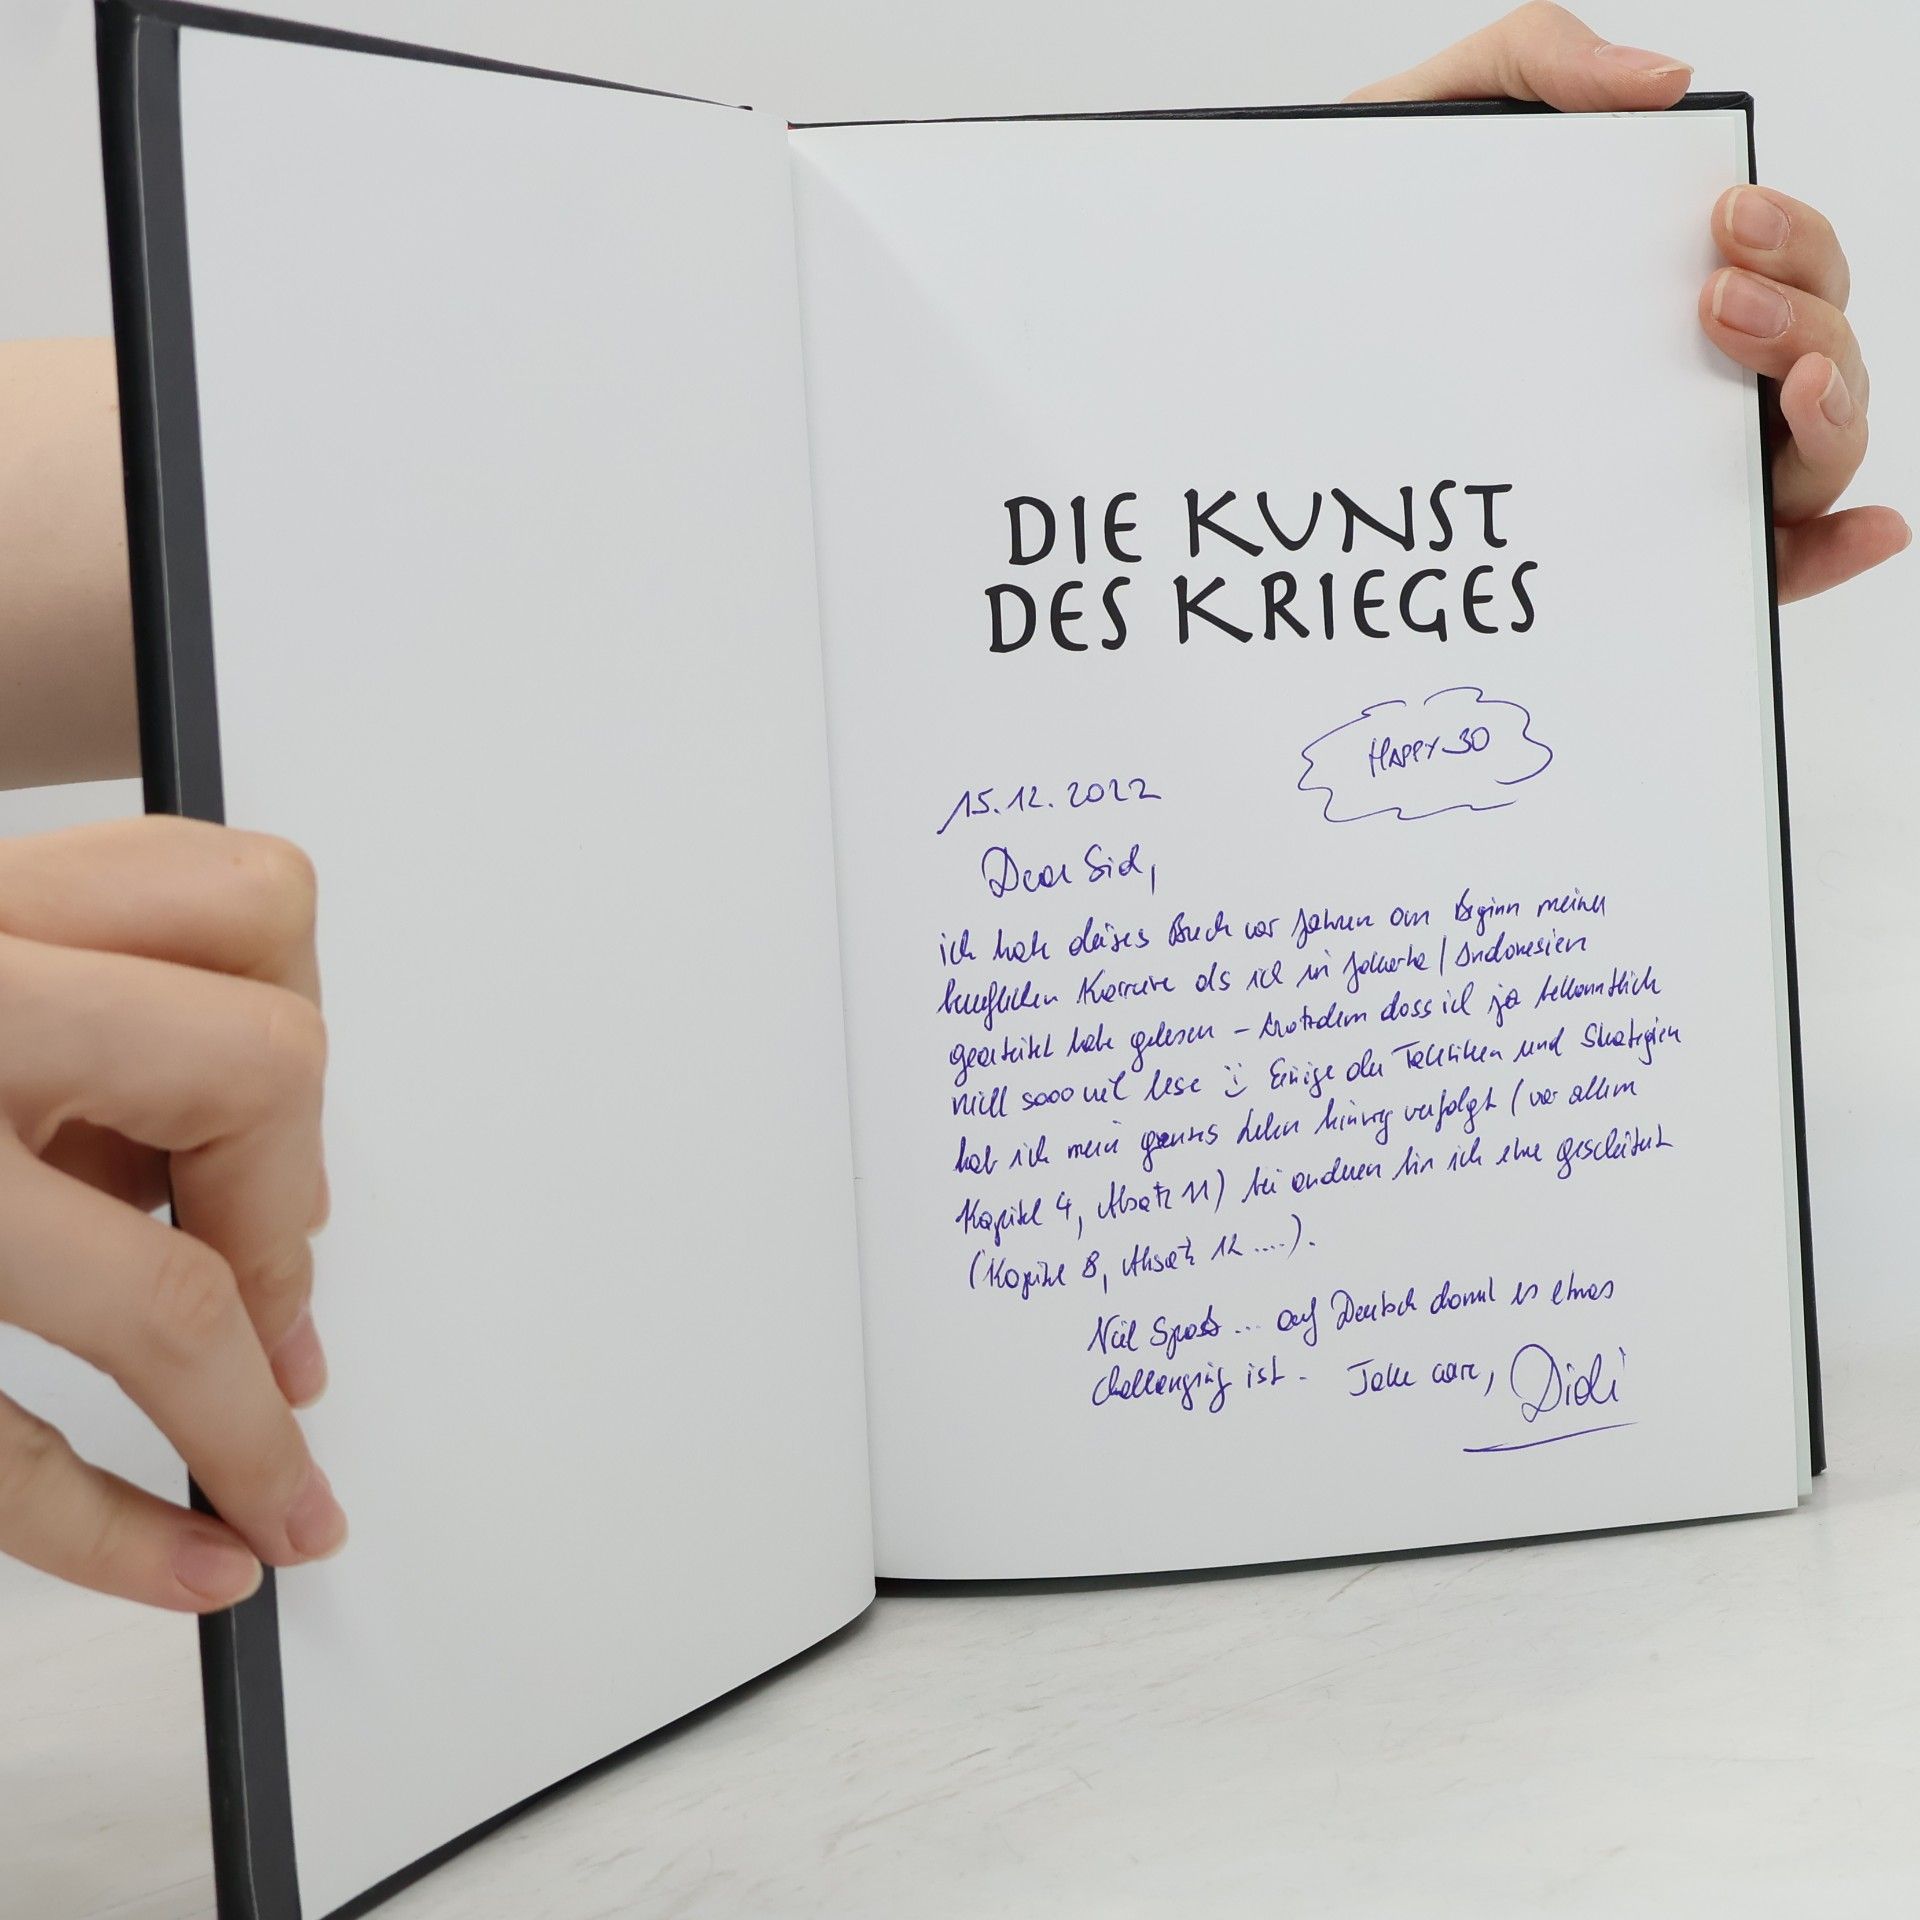 DIE KUNST
DES KRIEGES
HAPPY 30
15.12.2022
Dear Sid,
ich habe dieses Buch vor Jahren am Beginn meiner
beruflichen Karriere als ich in Jakarta / Indonesien
gearbeitet habe gelesen - trotzdem dass ich ja bekanntlich
nicht sooo viel lese :) Einige der Taktiken und Strategien
hab ich mein ganzes Leben hinweg verfolgt (vor allem
Kapitel 4, Absatz 11) bei anderen bin ich eher gescheitert
(Kapitel 8, Absatz 12 ....).
Viel Spass ... auf Deutsch damit es etwas
challenging ist. Take care, Didi